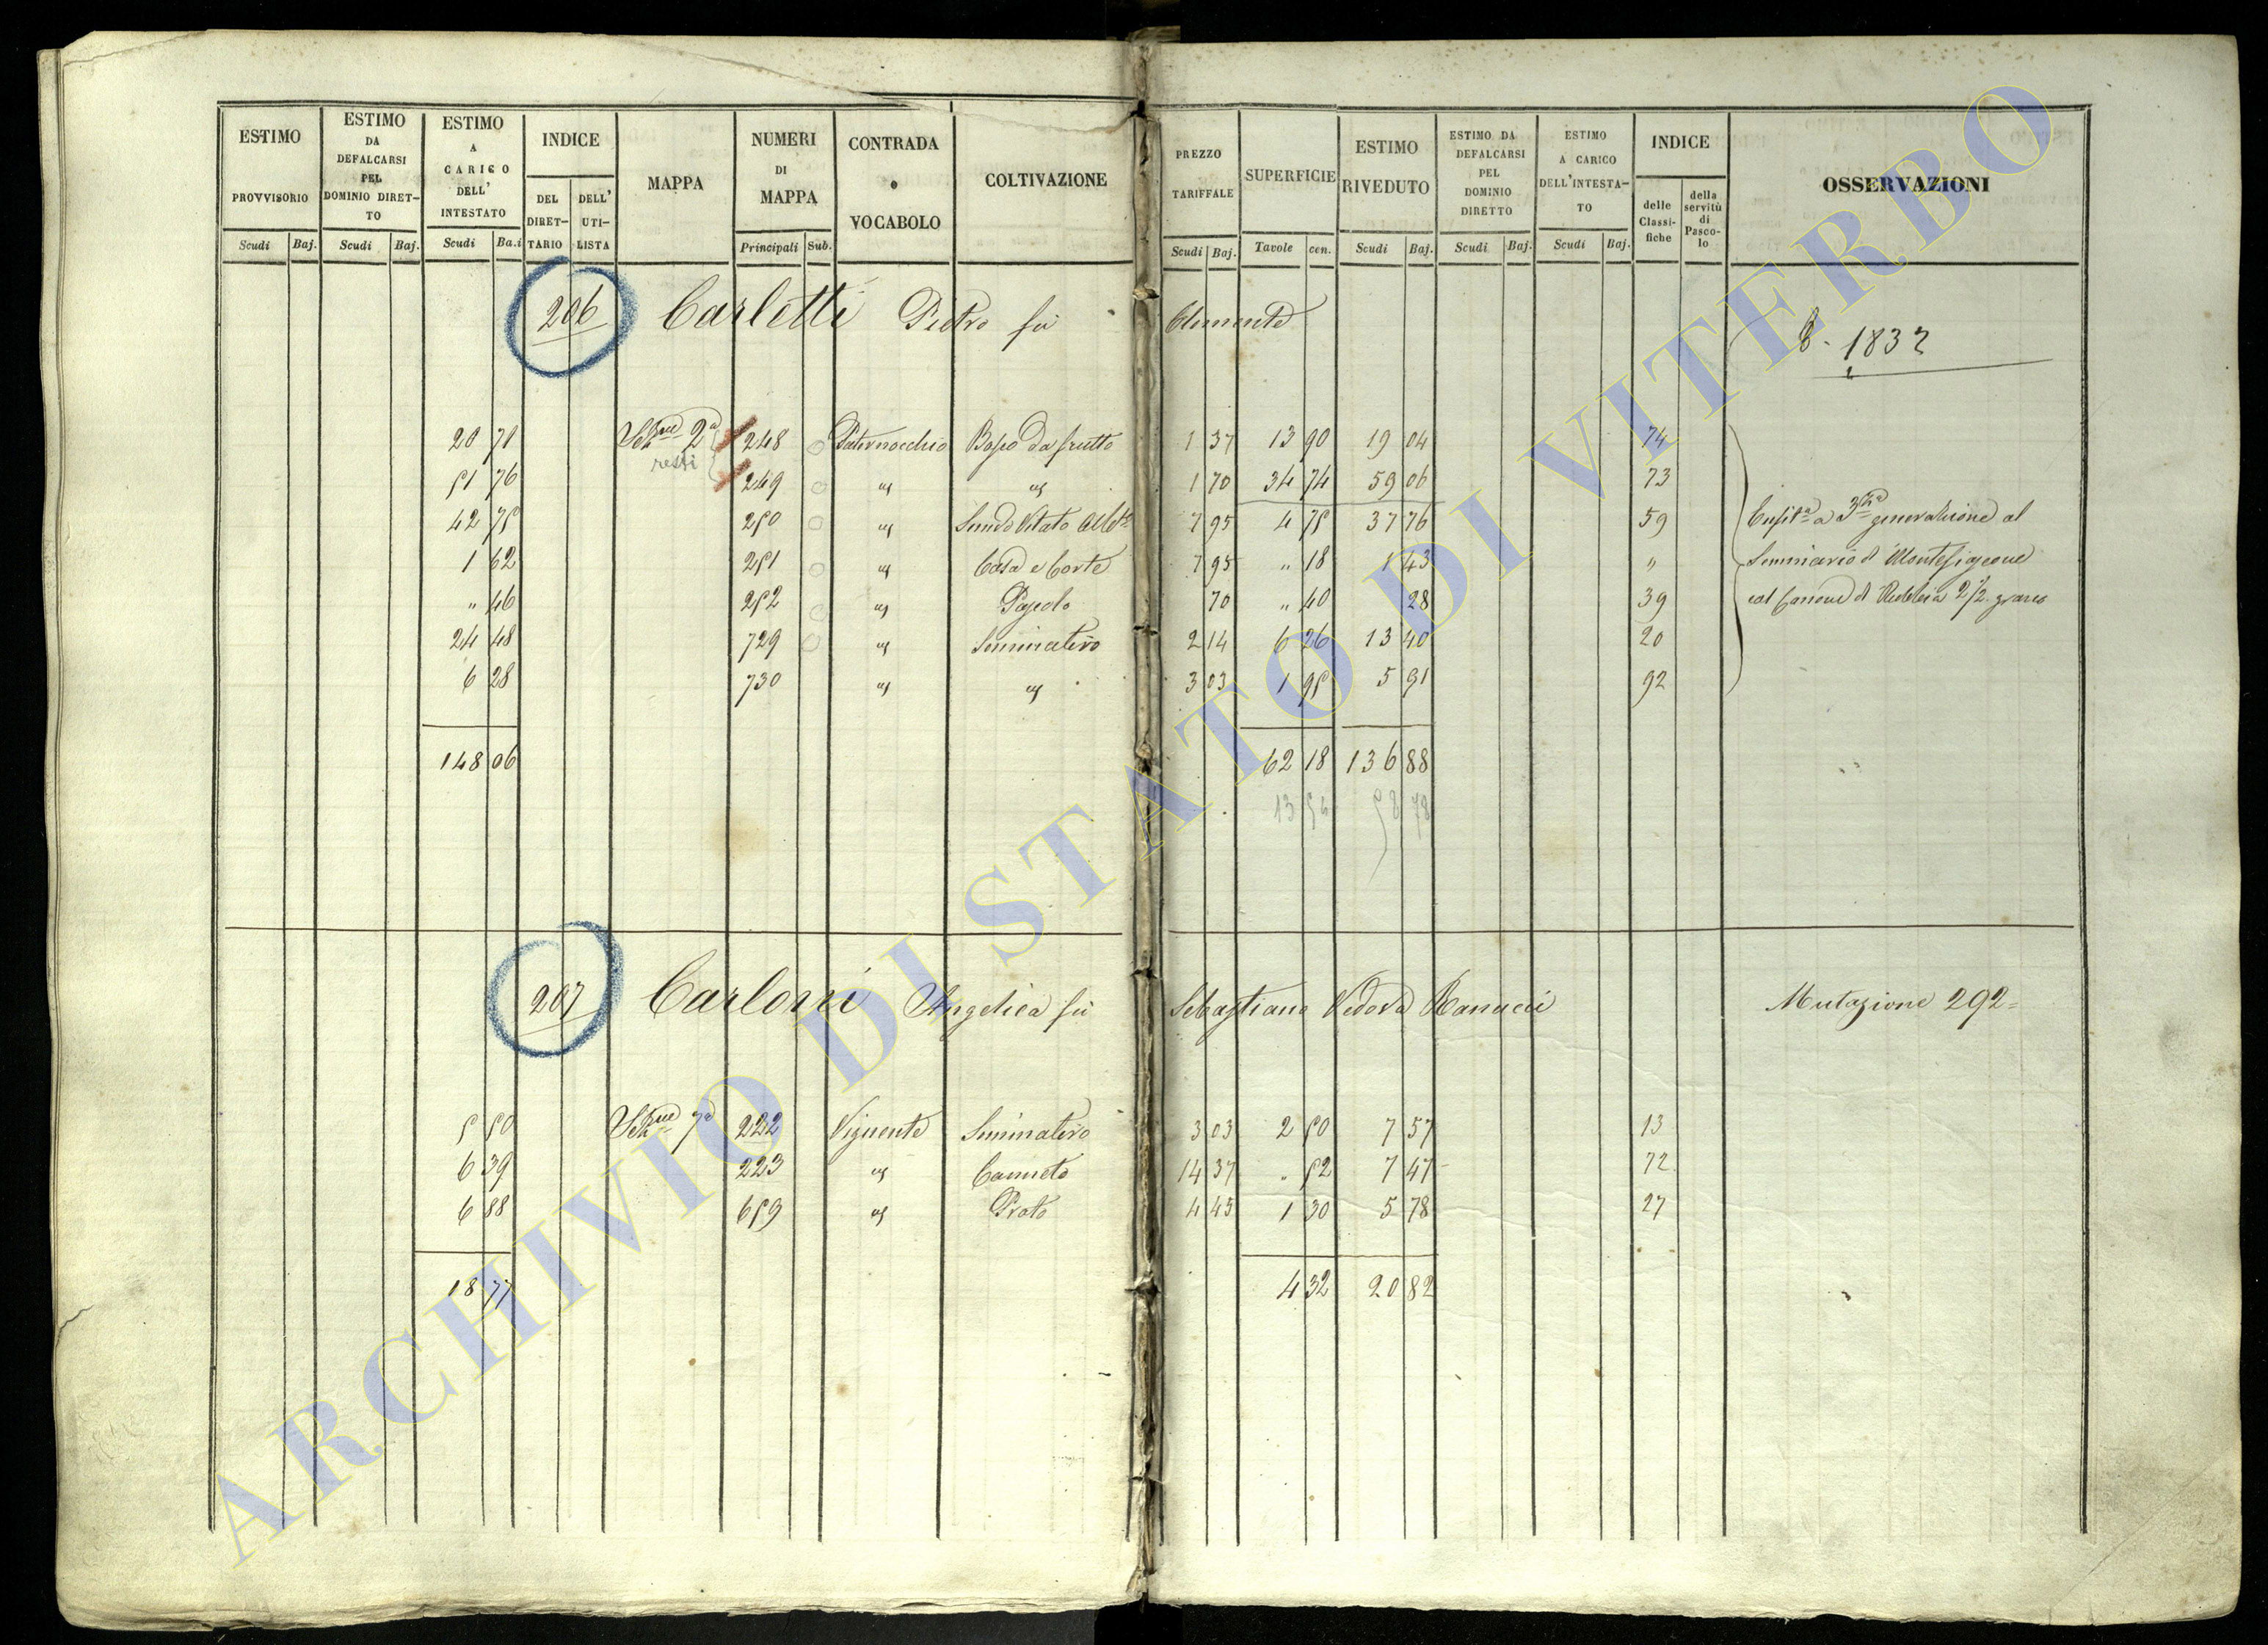 ESTIMO PROVVISORIO Scudi Baj.
ESTIMO DA DEFALCARSI PEL DOMINIO DIRET-TO Scudi Baj.
ESTIMO A CARICO DELL' INTESTATO Scudi Ba.i
INDICE DEL DIRET-TARIO DELL' UTI-LISTA
MAPPA
NUMERI DI MAPPA Principali Sub.
CONTRADA o VOCABOLO
COLTIVAZIONE
PREZZO TARIFFALE Scudi Baj.
SUPERFICIE Tavole cen.
ESTIMO RIVEDUTO Scudi Baj.
ESTIMO DA DEFALCARSI PEL DOMINIO DIRETTO Scudi Baj.
ESTIMO A CARICO DELL'INTESTA-TO Scudi Baj.
INDICE delle Classi-fiche della servitù di Pasco-lo
OSSERVAZIONI
206 Carletti Pietro fu Clemente
1832
20 71 248 Paternocchio da frutto 1 37 13 90 19 04 74
51 76 resti 249 " " 1 70 34 74 59 06 73
42 75 250 " 7 95 4 75 37 76 59 a 3za generazione al
1 62 251 " Casa e Corte 7 95 " 18 1 43 " Seminario di Montefiascone
" 46 252 " Pascolo 70 " 40 28 39 2 1/2
24 48 729 " Seminativo 2 14 6 26 13 40 20
6 28 730 " " 3 03 1 95 5 91 92
148 06 62 18 136 88
207 Carloni Angelica fu Sebastiano Vedova Ranucci Mutazione 292=
5 50 7a 222 Vignente Seminativo 3 03 2 50 7 57 13
6 39 223 " Canneto 14 37 " 52 7 47 72
6 88 659 " Prato 4 45 1 30 5 78 27
18 77 4 32 20 82
ARCHIVIO DI STATO DI VITERBO